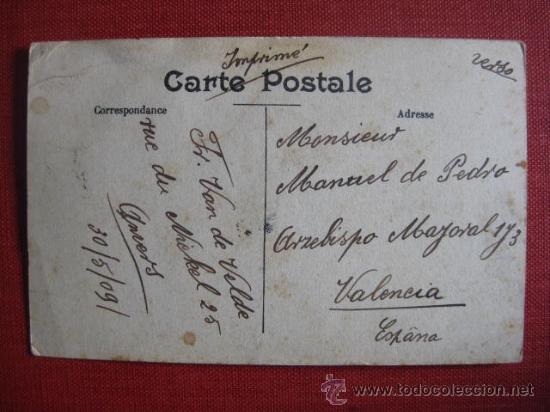 Imprimé
verso
Carte Postale
Correspondance
Adresse
Fr. Van de Velde
rue du Nickel 25
Anvers
30/5/09/
Monsieur
Manuel de Pedro
Arzebispo Mayoral 1y3
Valencia
Espãna
© todocoleccion.net
www.todocoleccion.net